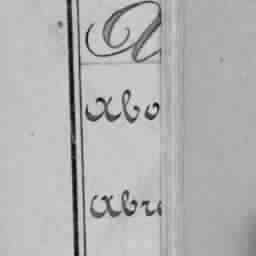 A
Abo
Abr